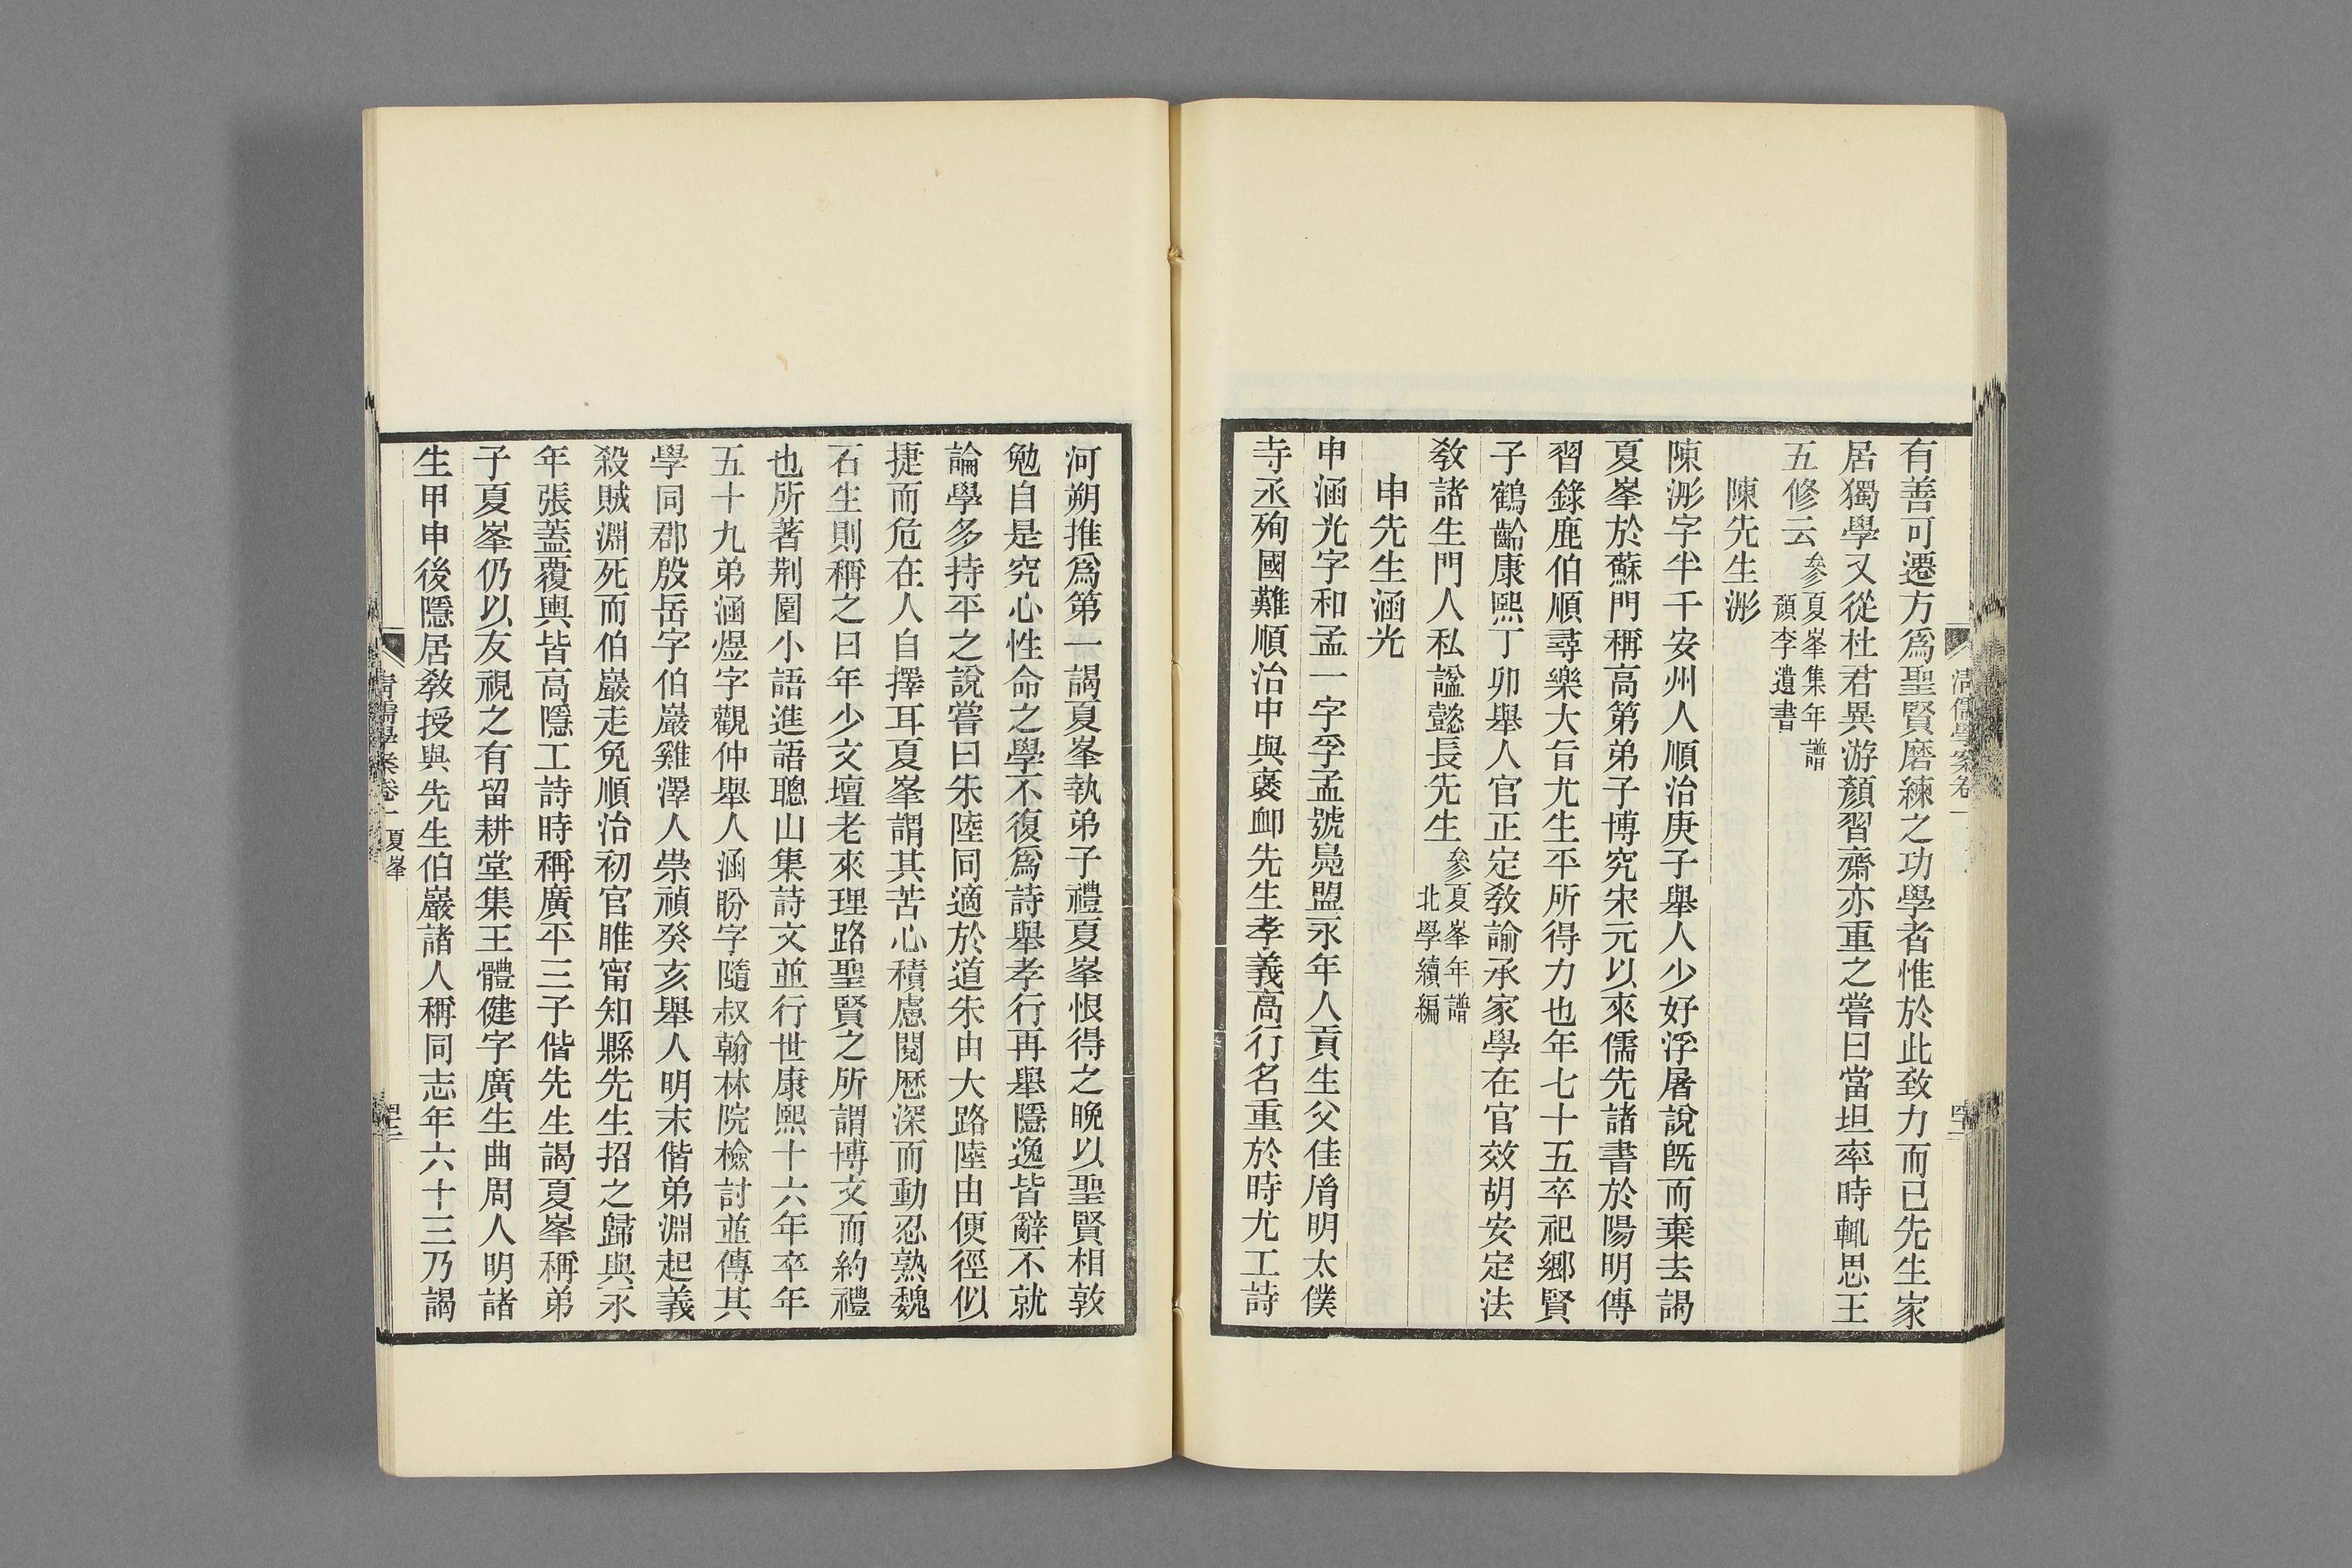 有善可遷方爲聖賢磨練之功學者惟於此致力而已先生家
居獨學又從杜君異游顏習齋亦重之嘗曰當坦率時輒思王
五修云參夏峯集年譜
顏李遺書
陳先生浵
陳浵字半千安州人順治庚子舉人少好浮屠說旣而棄去謁
夏峯於蘇門稱高第弟子博究宋元以來儒先諸書於陽明傳
習錄鹿伯順尋樂大旨尤生平所得力也年七十五卒祀鄕賢
子鶴齡康熙丁卯舉人官正定敎諭承家學在官效胡安定法
敎諸生門人私諡懿長先生參夏峯年譜
北學續編
申先生涵光
申涵光字和孟一字孚孟號鳧盟永年人貢生父佳胤明太僕
寺丞殉國難順治中與襃卹先生孝義高行名重於時尤工詩
河朔推爲第一謁夏峯執弟子禮夏峯恨得之晚以聖賢相敦
勉自是究心性命之學不復爲詩舉孝行再舉隱逸皆辭不就
論學多持平之說嘗曰朱陸同適於道朱由大路陸由便徑似
捷而危在人自擇耳夏峯謂其苦心積慮閱歷深而動忍熟魏
石生則稱之曰年少文壇老來理路聖賢之所謂博文而約禮
也所著荆園小語進語聰山集詩文並行世康熙十六年卒年
五十九弟涵煜字觀仲舉人涵盼字隨叔翰林院檢討並傳其
學同郡殷岳字伯巖雞澤人崇禎癸亥舉人明末偕弟淵起義
殺賊淵死而伯巖走免順治初官睢甯知縣先生招之歸與永
年張蓋覆輿皆高隱工詩時稱廣平三子偕先生謁夏峯稱弟
子夏峯仍以友視之有留耕堂集王體健字廣生曲周人明諸
生甲申後隱居敎授與先生伯巖諸人稱同志年六十三乃謁
清儒學案卷一 夏峯